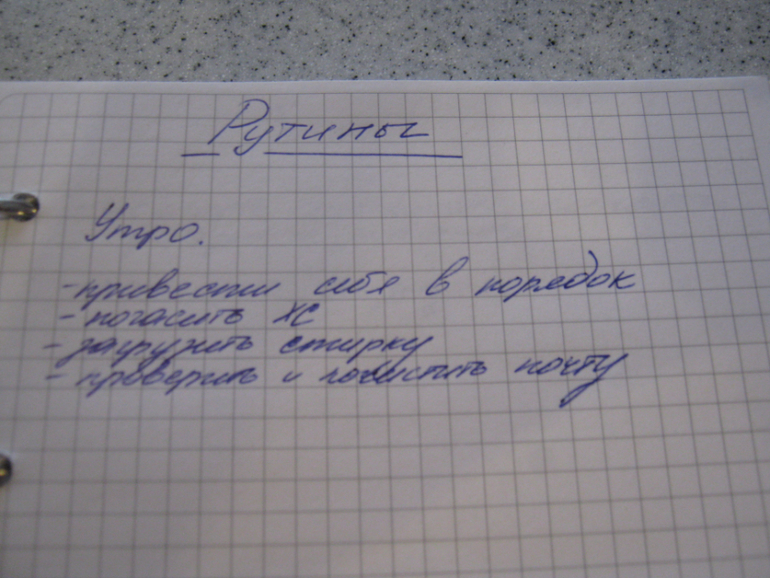 Рутины
Утро.
- привести себя в порядок
- погасить ХС
- загрузить стирку
- проверить и почистить почту